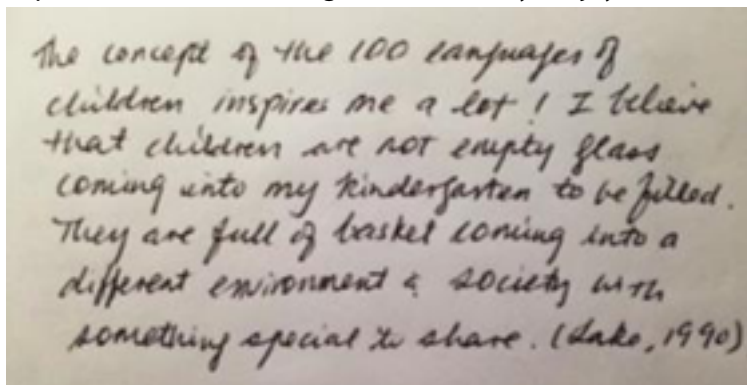 The concept of the 100 languages of
children inspires me a lot! I believe
that children are not empty glass
coming into my kindergarten to be filled.
They are full of basket coming into a
different environment & society with
something special to share. (Lake, 1990)